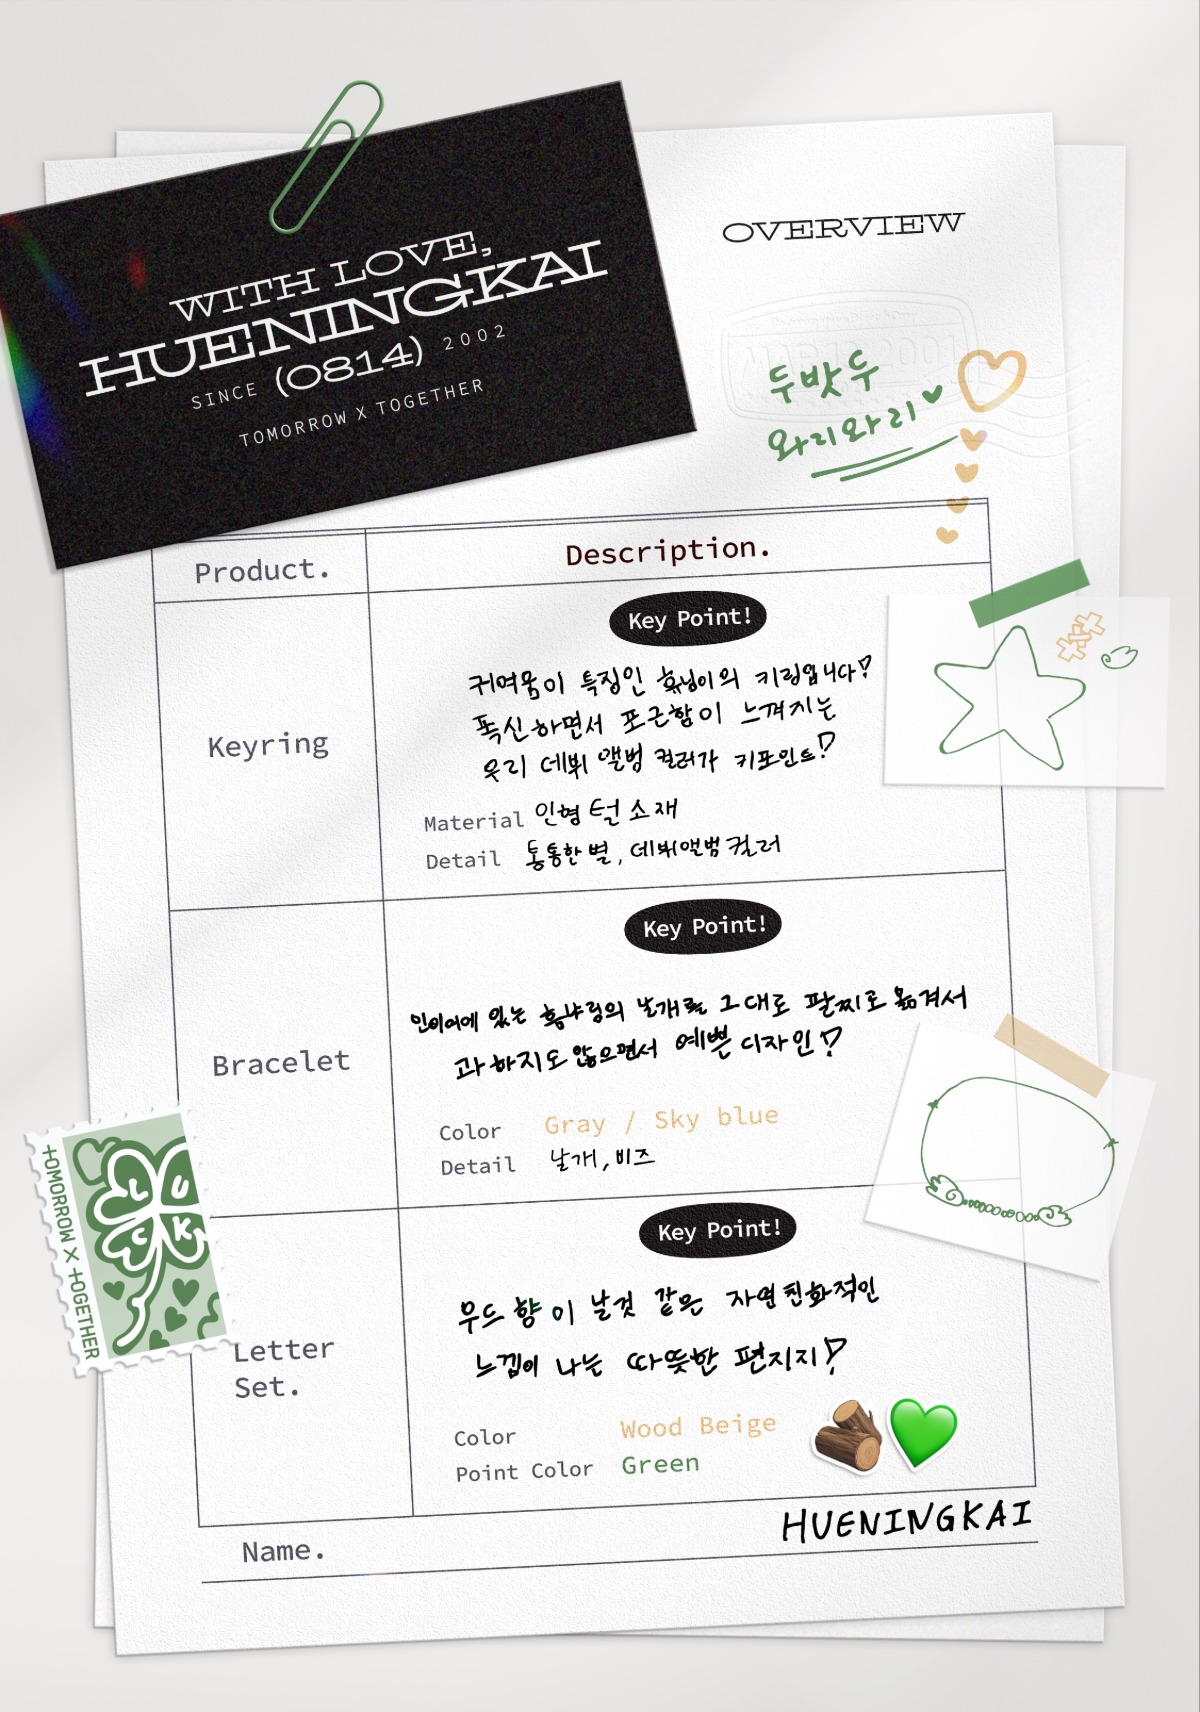 WITH LOVE,
HUENINGKAI
SINCE (0814) 2002
TOMORROW X TOGETHER
OVERVIEW
두밧두
와리와리
Product.
Description.
Keyring
Key Point!
귀여움이 특징인 휴닝이의 키링입니다!
푹신하면서 포근함이 느껴지는
우리 데뷔 앨범 컬러가 키포인트!
Material 인형 털 소재
Detail 통통한 별, 데뷔앨범 컬러
Bracelet
Key Point!
인이어에 있는 흉냐링의 날개를 그대로 팔찌로 옮겨서
과하지도 않으면서 예쁜 디자인!
Color Gray / Sky blue
Detail 날개, 비즈
TOMORROW X TOGETHER
LUCK
Letter
Set.
Key Point!
우드 향이 날것 같은 자연친화적인
느낌이 나는 따뜻한 편지지!
Color Wood Beige
Point Color Green
HUENINGKAI
Name.